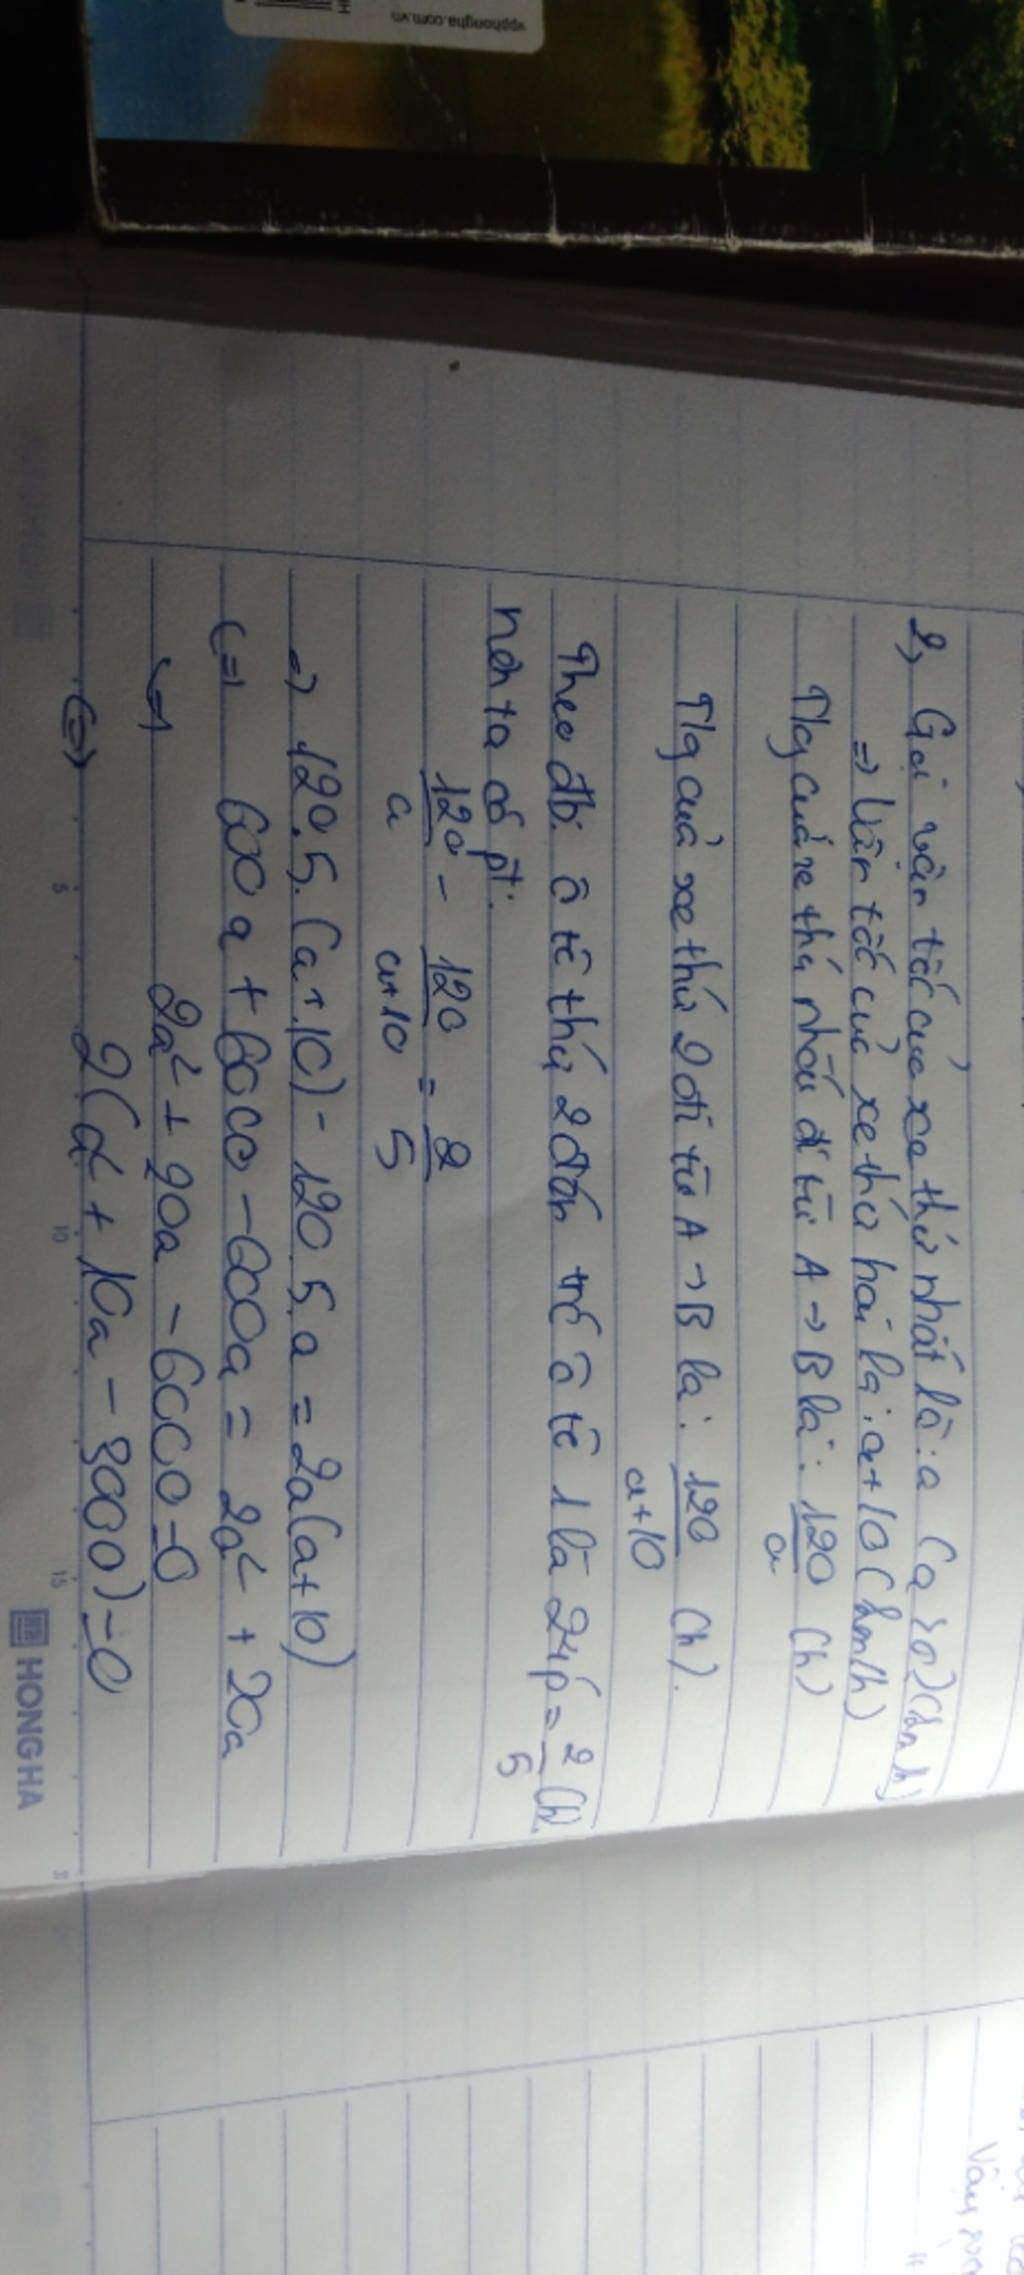 vpphongha.com.vn
2, Gọi vận tốc của xe thứ nhất là: a (a>0) (km/h)
=> Vận tốc của xe thứ hai là: a+10 (km/h)
Tg của xe thứ nhất đi từ A -> B là: 120/a (h)
Tg của xe thứ 2 đi từ A -> B là: 120/a+10 (h).
Theo đb: ô tô thứ 2 đến trễ ô tô 1 là 24p = 2/5 (h).
nên ta có pt:
120/a - 120/a+10 = 2/5
=> 120.5.(a+10) - 120.5.a = 2a(a+10)
(=) 600a + 6000 - 600a = 2a² + 20a
(=) 2a² + 20a - 6000 = 0
(=) 2(a² + 10a - 3000) = 0
5 10 15
HONG HA
Vậy